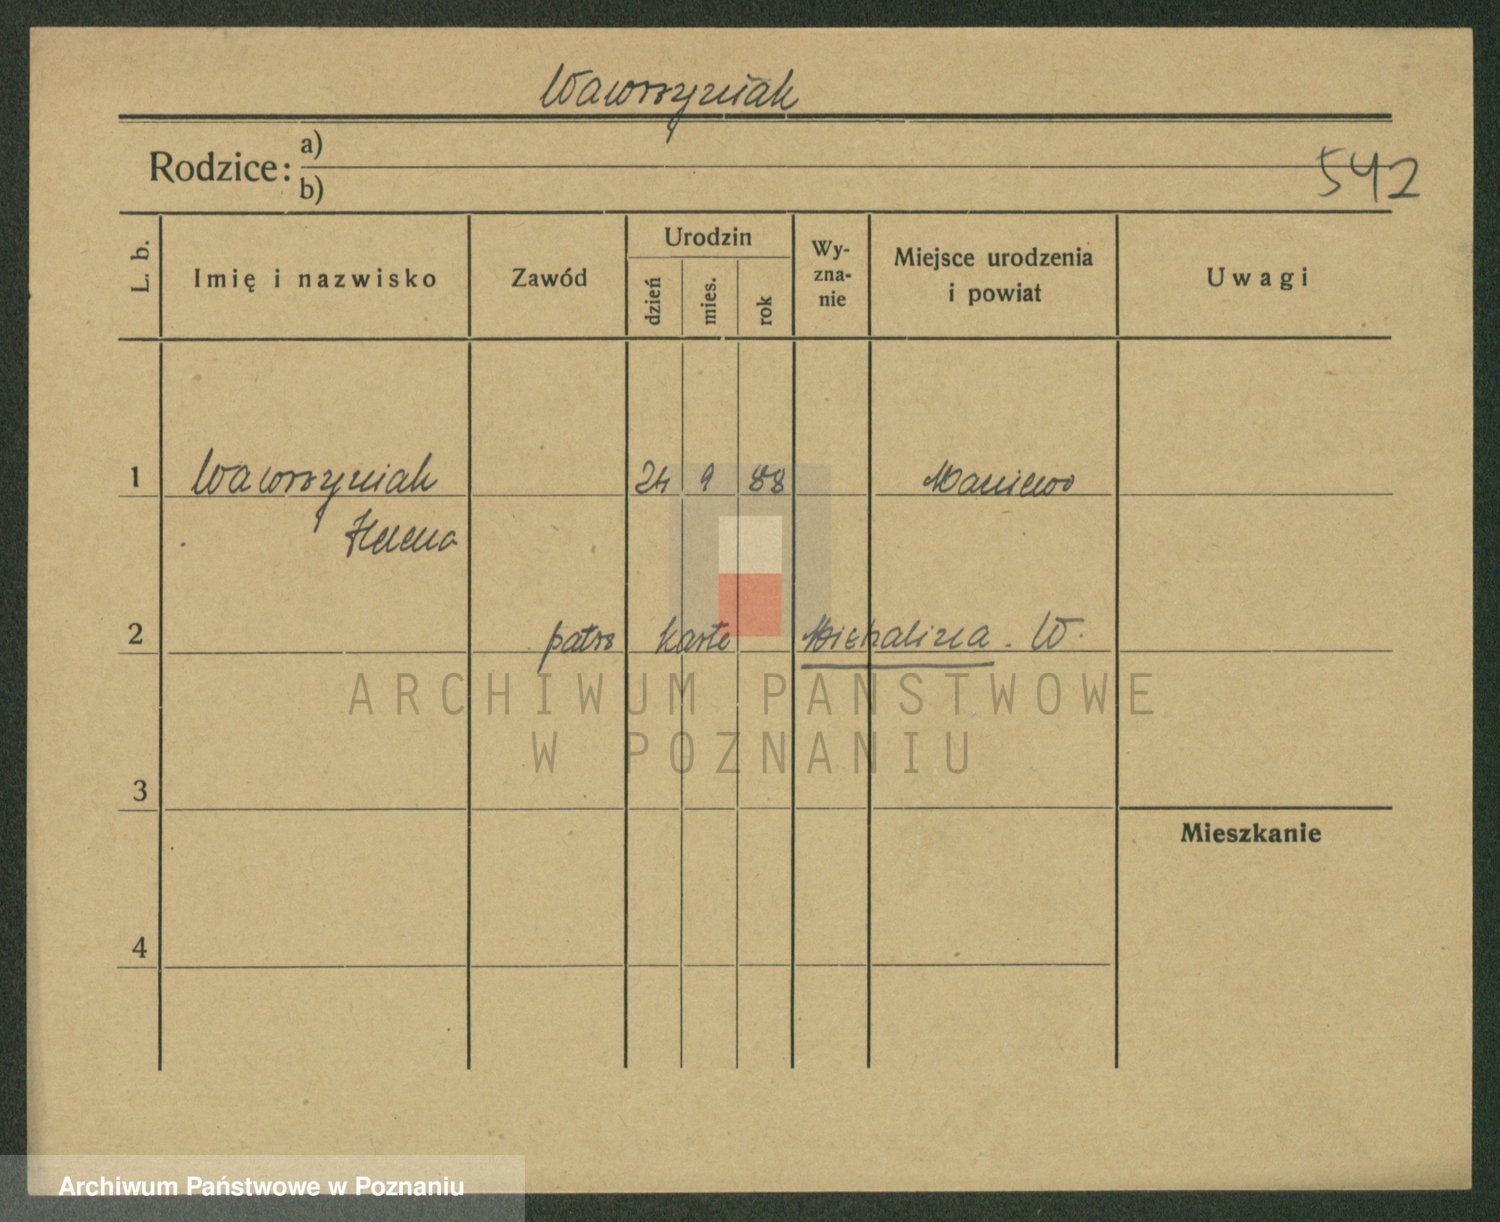 Wawrzyniak
Rodzice: a)
b)
542
L. b.
Imię i nazwisko
Zawód
Urodzin
dzień
mies.
rok
Wy-
zna-
nie
Miejsce urodzenia
i powiat
Uwagi
1 Wawrzyniak 24 9 88 Maniewo
Helena
2 patrz kartę Michalina. W.
ARCHIWUM PAŃSTWOWE
W POZNANIU
3
Mieszkanie
4
Archiwum Państwowe w Poznaniu